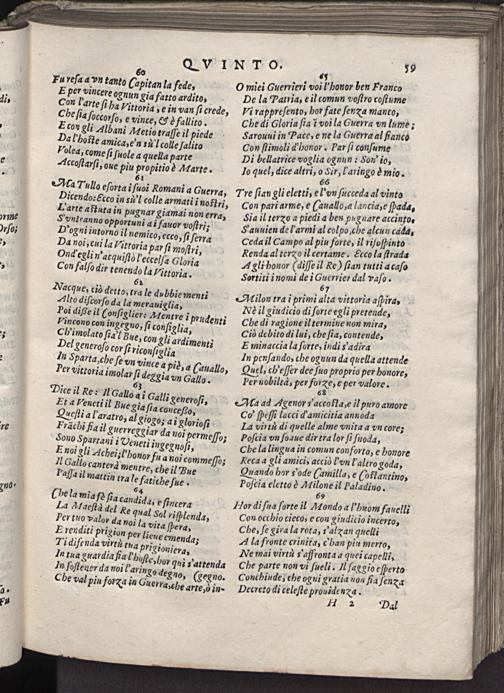 QVINTO.
59
60
Fu resa a vn tanto Capitan la fede,
E per vincere ognun gia fatto ardito,
Con l'arte si ha Vittoria, e in van si crede,
Che sia soccorso, e vince, & è fallito.
E con gli Albani Metio trasse il piede
Da l'hoste amica, e'n sù'l colle salito
Volea, come si suole a quella parte
Accostarsi, oue piu propitio è Marte.
61
Ma Tullo esorta i suoi Romani a Guerra,
Dicendo: Ecco in sù'l colle armati i nostri,
L'arte astuta in pugnar giamai non erra,
S'vntranno opportuni a i fauor vostri;
D'ogni intorno il nemico, ecco, si serra
Da noi, cui la Vittoria par si mostri,
Ond'egli n'acquistò l'eccelsa Gloria
Con falso dir tenendo la Vittoria.
62
Nacque, ciò detto, tra le dubbie menti
Alto discorso da la merauiglia.
Poi disse il Consiglier: Mentre i prudenti
Vincono con ingegno, si consiglia,
Ch'imolato sia'l Bue, con gli ardimenti
Del generoso cor si riconsiglia
In Sparta, che se vn vince a piè, a Cauallo,
Per vittoria imolar si deggia vn Gallo.
63
Dice il Re: Il Gallo a i Galli generosi,
Et a Veneti il Bue gia sia concesso,
Questi a l'aratro, al giogo; a i gloriosi
Frāchi fia il guerreggiar da noi permesso;
Sono Spartani i Veneti ingegnosi,
E noi gli Achei; l'honor fu a noi commesso;
Il Gallo canterà mentre, che il Bue
Passa il mattin tra le fatiche sue.
64
Che la mia fè sia candida, e sincera
La Maestà del Re qual Sol risplenda,
Per tuo valor da noi la vita spera,
E renditi prigion per lieue emenda;
Ti difenda virtù tua prigioniera,
In tua guardia sia l'hoste, hor qui s'attenda
In sostener da noi l'aringo degno, (gegno.
Che val piu forza in Guerra, che arte, ò in-
65
O miei Guerrieri voi l'honor ben Franco
De la Patria, e il comun vostro costume
Vi rappresento, hor fate senza manto,
Che di Gloria sia i voi la Guerra vn lume;
Sarouui in Pace, e ne la Guerra al fianco
Con stimoli d'honor. Par si consume
Di bellatrice voglia ognun: Son'io,
Io quel, dice altri, o Sir, l'aringo è mio.
66
Tre sian gli eletti, e l'vn succeda al vinto
Con pari arme, e Cauallo, a lancia, e spada,
Sia il terzo a piedi a ben pugnare accinto,
S'auuien de l'armi al colpo, che alcun cada,
Ceda il Campo al piu forte, il risospinto
Renda al terzo il certame. Ecco la strada
A gli honor (disse il Re) sian tutti a caso
Sortiti i nomi de i Guerrier dal vaso.
67
Milon tra i primi alta vittoria aspira,
Nè il giudicio di sorte egli pretende,
Che di ragione il termine non mira,
Ciò debito di lui, che sia, contende,
E minaccia la sorte, indi s'adira
In pensando, che ognun da quella attende
Quel, ch'esser dee suo proprio per honore,
Per nobiltà, per forze, e per valore.
68
Ma ad Agenor s'accosta, e il puro amore
Co' spessi lacci d'amicitia annoda
La virtù di quelle alme vnita a vn core;
Poscia vn soaue dir tra lor si snoda,
Che la lingua in comun conforto, e honore
Reca a gli amici, acciò l'vn l'altro goda,
Quando hor s'ode Camilla, e Costantino,
Poscia eletto è Milone il Paladino.
69
Hor di sua sorte il Mondo a l'huom fauelli
Con occhio cieco, e con giudicio incerto,
Che, se gira la rota, s'alzan quelli
A la fronte crinita, c'han piu merto,
Ne mai virtù s'affronta a quei capelli,
Che parte non vi sueli. Il saggio esperto
Conchiude, che ogni gratia non sia senza
Decreto di celeste prouidenza.
H 2 Dal